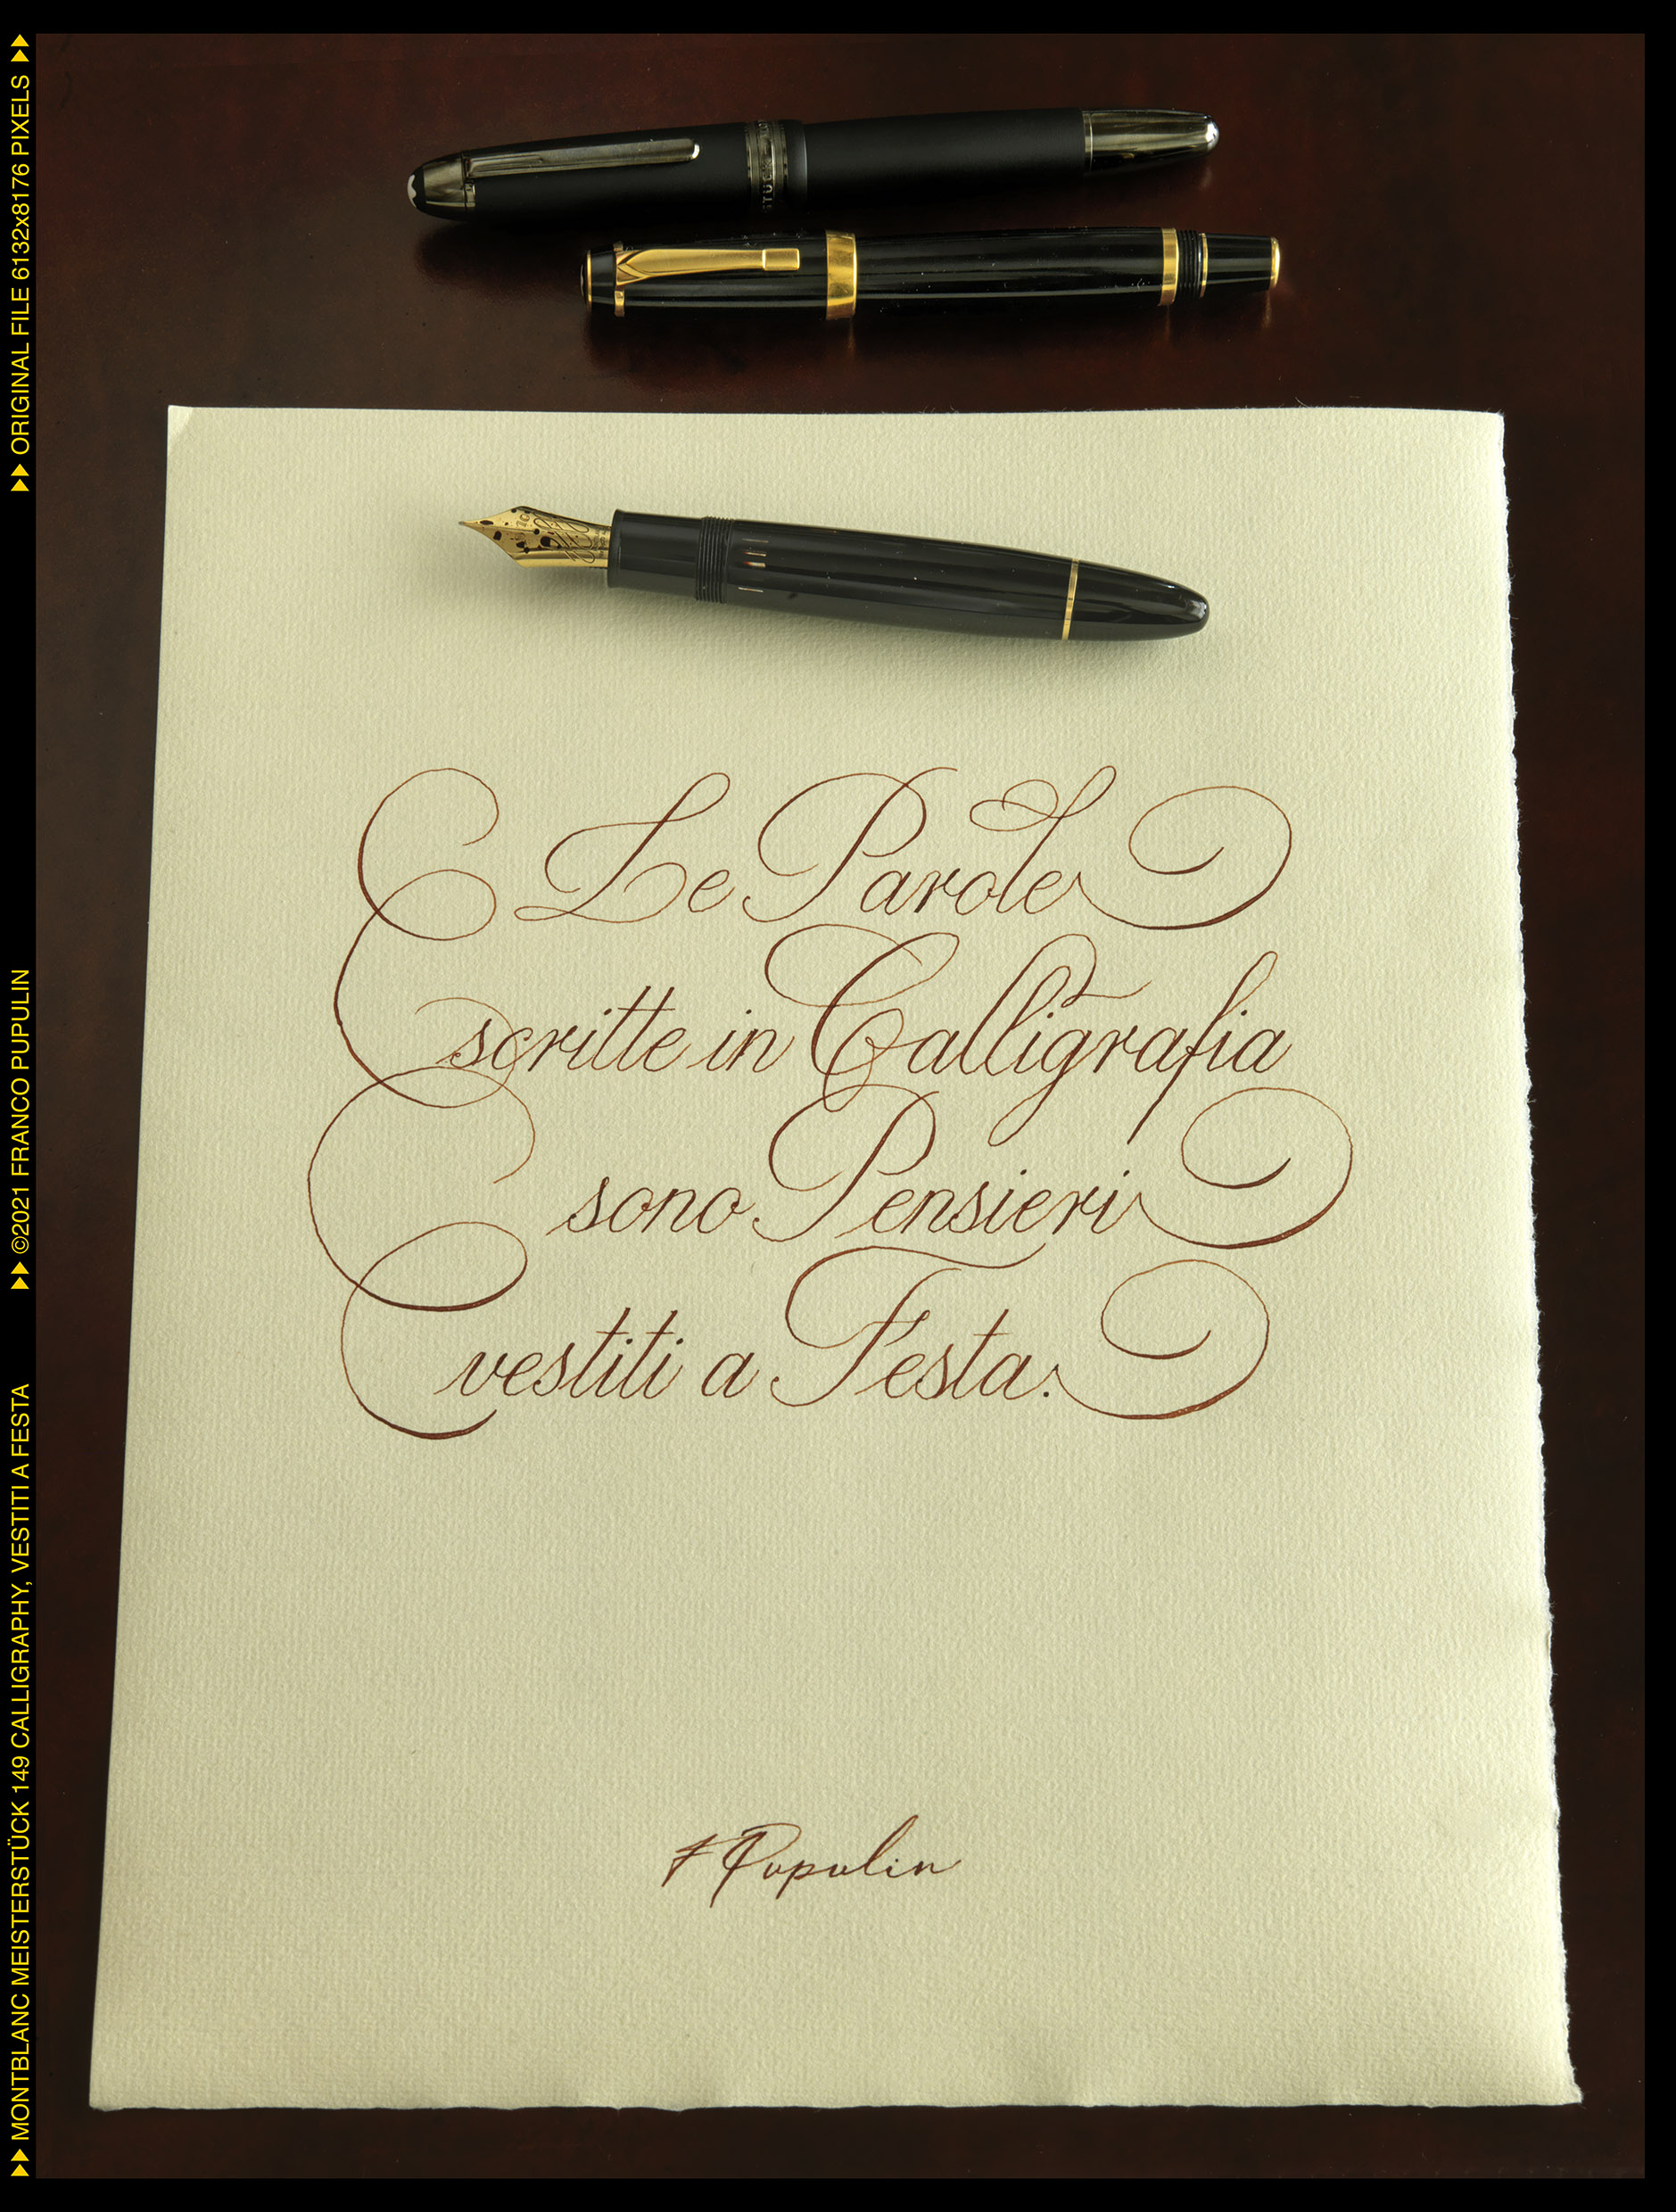 Le Parole
scritte in Calligrafia
sono Pensieri
vestiti a Festa.
F Pupulin
MONTBLANC MEISTERSTÜCK 149 CALLIGRAPHY, VESTITI A FESTA
©2021 FRANCO PUPULIN
ORIGINAL FILE 6132x8176 PIXELS